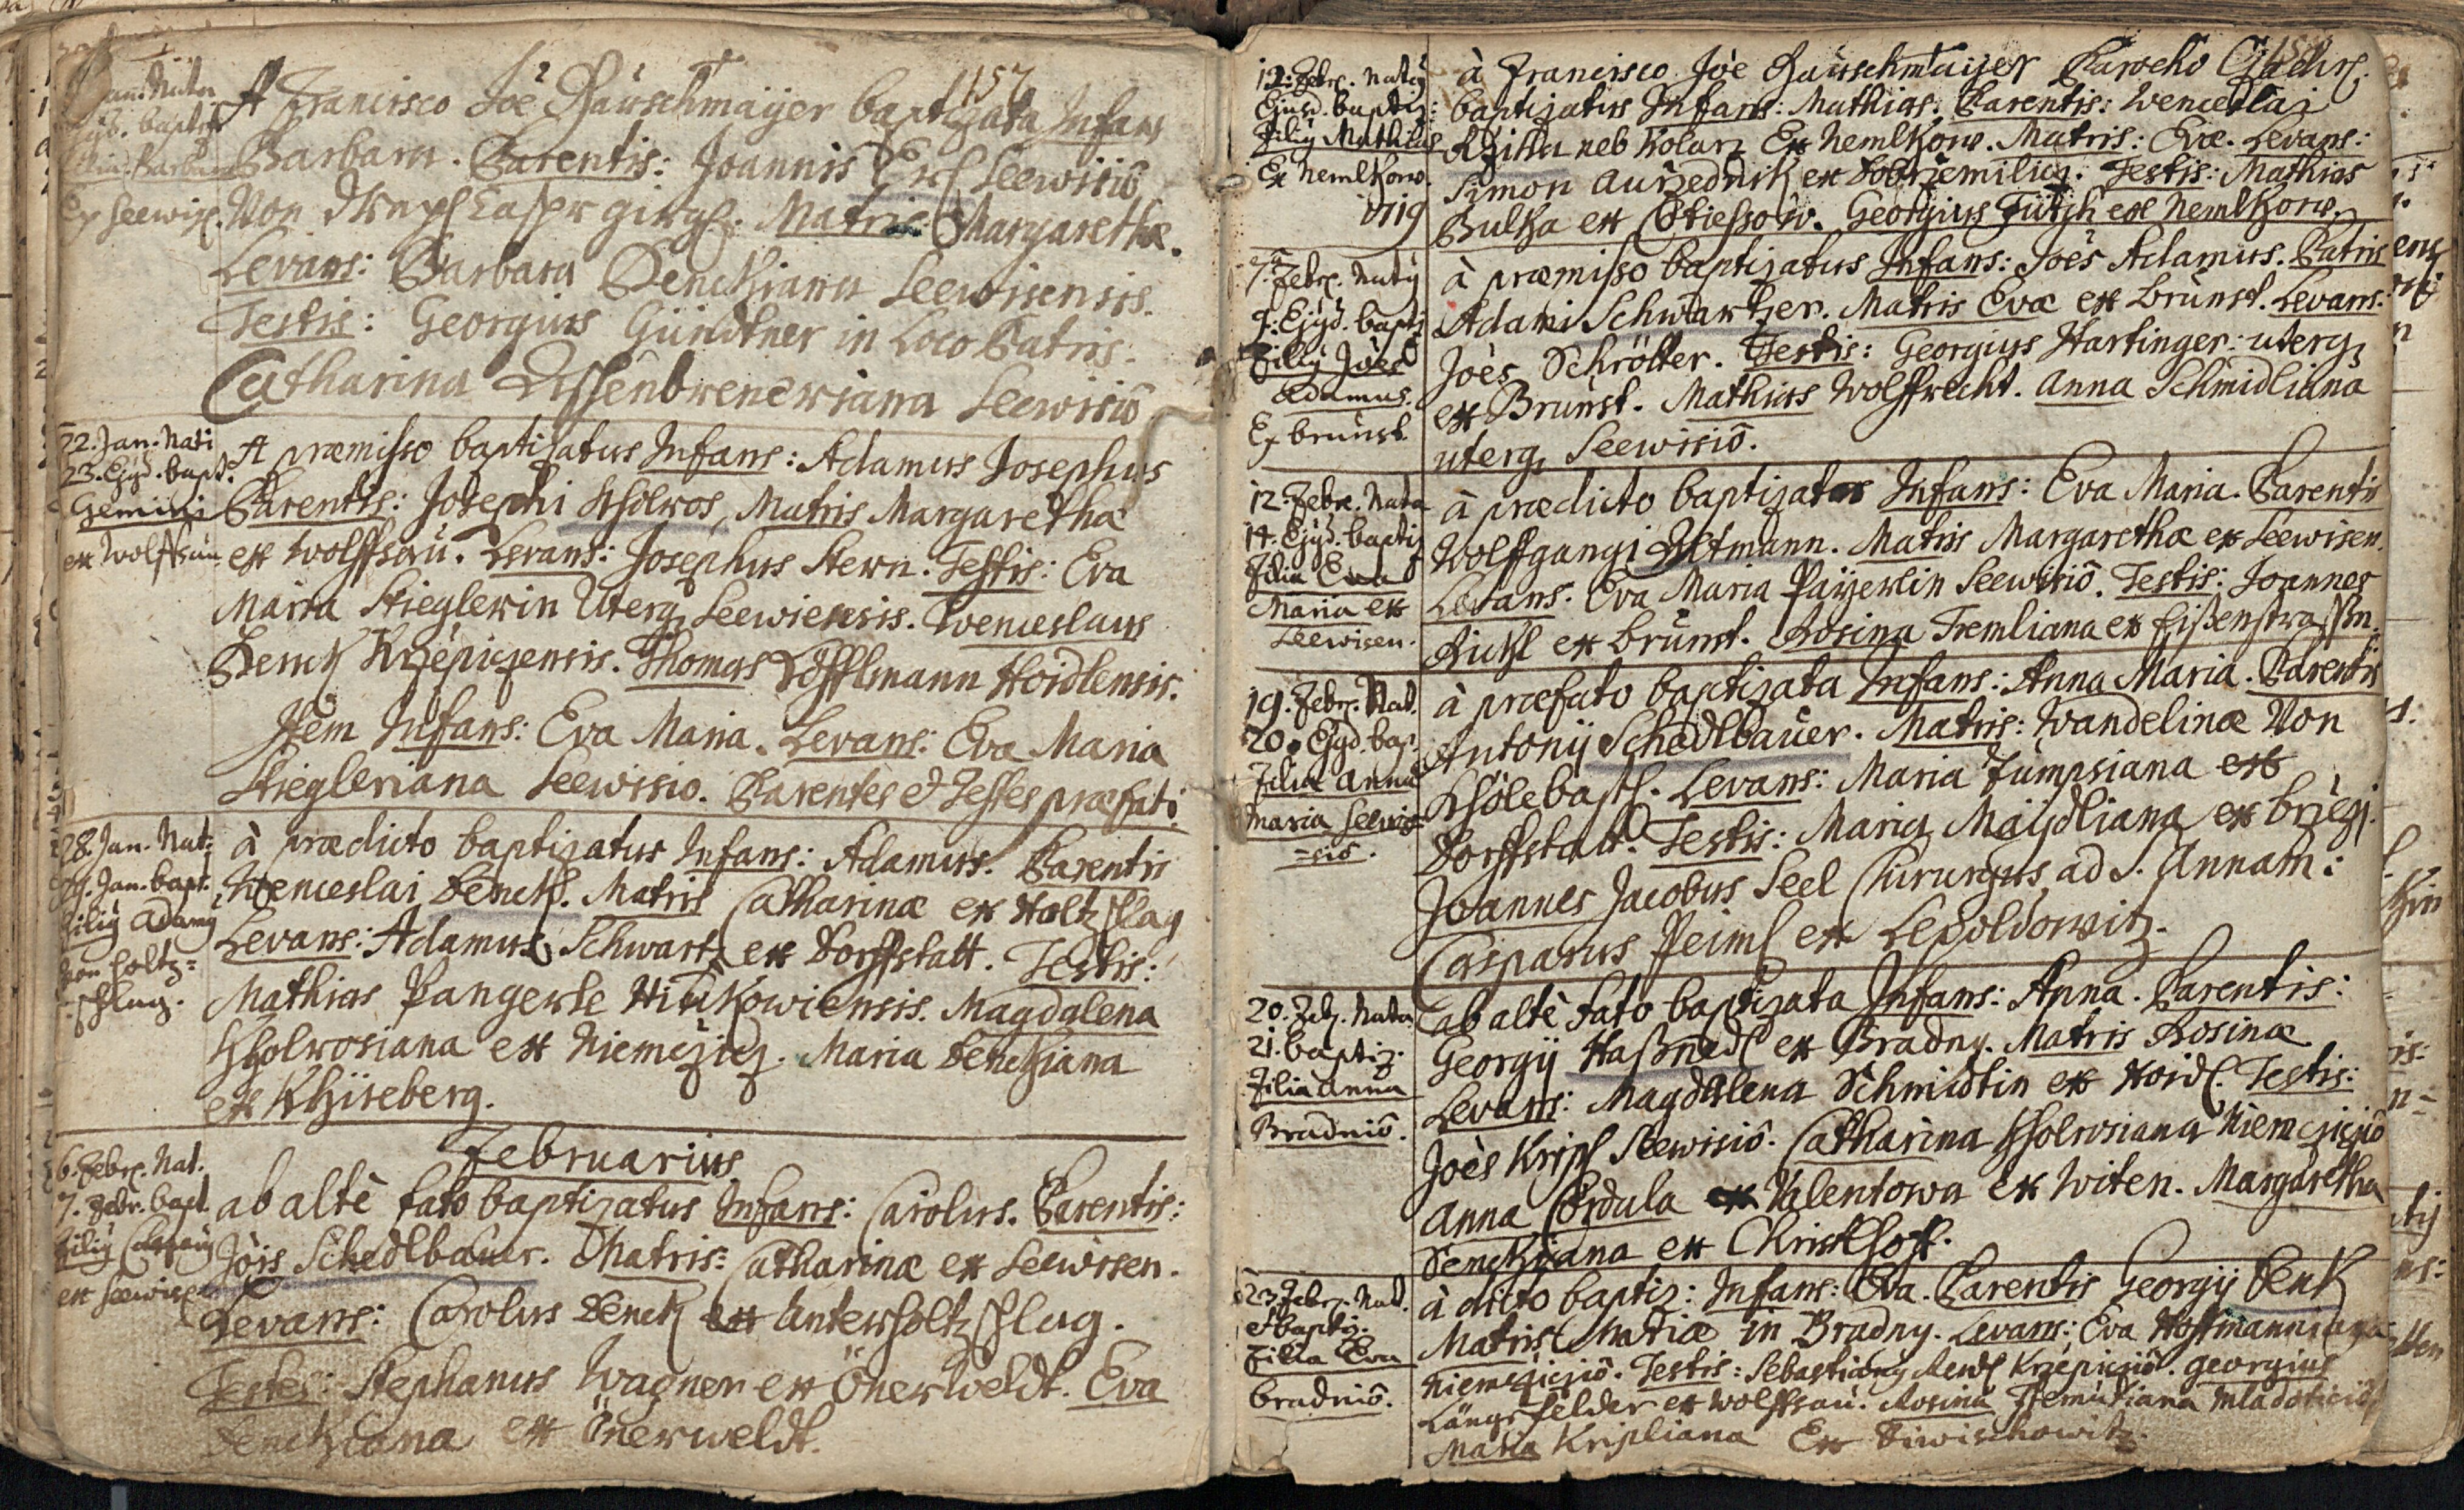 157
A Francisco Joe Rauschmaijer baptizata Infans
Barbara. Parentis: Joannis Seewisiô
Von Matris Margarethæ.
Levans: Barbara Denckiana Seewisensis.
Testis: Georgius Gündtner in Loco Patris.
Catharina Seewisiô
22. Jan. Nati
23. Ejusd. bapt.
Gemini
ex Wolffsau
A præmisso baptizatus Infans: Adamus Josephus
Parentis: Josephi Kholros, Matris Margaretha
ex Wolffsau. Levans: Josephus Stern. Testis: Eva
Maria Stieglerin Uterq Seewiensis. Wenceslaus
Denck Krzepiczensis. Thomas Löfflmann Hoidlensis.
Item Infans: Eva Maria. Levans: Eva Maria
Stiegleriana Seewisio. Parentes et Testes præfati.
28. Jan. Nat:
29. Jan. bapt.
filig Adamg
Von Holtz=
=schlag.
à prædicto baptizatus Infans: Adamus. Parentis
Wenceslai Denck. Matris Catharinæ ex Holtzschlag
Levans: Adamus Schwartz ex Dorffstatt. Testis:
Mathias Pangerle Magdalena
Kholrosiana ex Niemczicz. Maria Denckiana
ex Khiseberg.
Februarius
6. Febr. Nat.
7. Febr. bapt.
filig Carolg
ex Seewisn
ab altè fato baptizatus Infans: Carolus. Parentis:
Jois Schedlbauer. Matris: Catharinæ ex Seewisen.
Levans: Carolus Denck ex Unterholtzschlag.
Testes: Stephanus Wagner ex Önerweldt. Eva
Denckiana ex Önerweldt.
12. Febr. Natg
Ejusd. baptiz:
Filig Mathias
Ex Nemlkow.
1719
à Francisco Joe Rauschmaijer Parocho
baptizatus Infans: Mathias. Parentis: Wenceslai
Rziha neb Kolarz Ex Nemlkow. Matris: Evæ. Levans:
Simon Aurzednik ex Dobrzemilicz. Testis: Mathias
Bulka ex Georgius ex Nemlkow.
7. Febr. Natg
9. Ejgd. bapti
Filig Joes
Adamus.
Ex brunst.
à præmisso baptizatus Infans: Joês Adamus. Patris
Adami Schwartzer. Matris Evæ ex Brunst. Levans:
Joès Schrötter. Testis: Georgius Hartinger: uterq
ex Brunst. Mathias Wolffrecht. Anna Schmidliana
uterq Seewisiô.
12. Febr. Nata
14. Ejgd. baptiz
Filia Eva
Maria ex
Seewisen.
à prædicto baptizatas Infans: Eva Maria. Parentis
Wolffgangi Altmann. Matris Margarethæ ex Seewisen.
Levans: Eva Maria Paijerlin Seewisiô. Testis: Joannes
Aichl ex brunst. Rosina Tremliana ex Eißenstrassn.
19. Febr. Nat.
20. Ejgd. bap.
Filia Anna
Maria Seewi=
=siô.
à præfato baptizata Infans: Anna Maria. Parentis
Antonij Schedlbauer. Matris: Wandelinæ Von
Levans: Maria Zumpsiana ex
Dorffstatt. Testis: Maria Maijdliana ex
Joannes Jacobus Seel Chirurgus ad S. Annam:
Casparus Peiml ex Lepoldowitz.
20. Feb. Nata
21. baptiz.
Filia Anna
Bradniô.
ab altè fato baptizata Infans: Anna. Parentis:
Georgij Haßnedl ex Bradny. Matris Rosinæ
Levans: Magdalena Schmidtin ex Hoidl. Testis:
Joès Kripl Seewisiô. Catharina Kholrosiana Niemcziciô
Anna Cordula Valentowa ex Witen. Margaretha
Denckiana ex Christhoff.
23. Febr. Nat.
et baptiz.
Filia Eva
Bradniô.
à dicto baptiz: Infans: Eva. Parentis Georgij Denk
Matris Mariæ in Bradny. Levans: Eva Hoffmanniana
Niemcziciô. Testis: Sebastiang Krzepiciô. Georgius
Längsfelder ex Wolffsau. Rosina
Maria Kripliana Ex Diwischowitz.